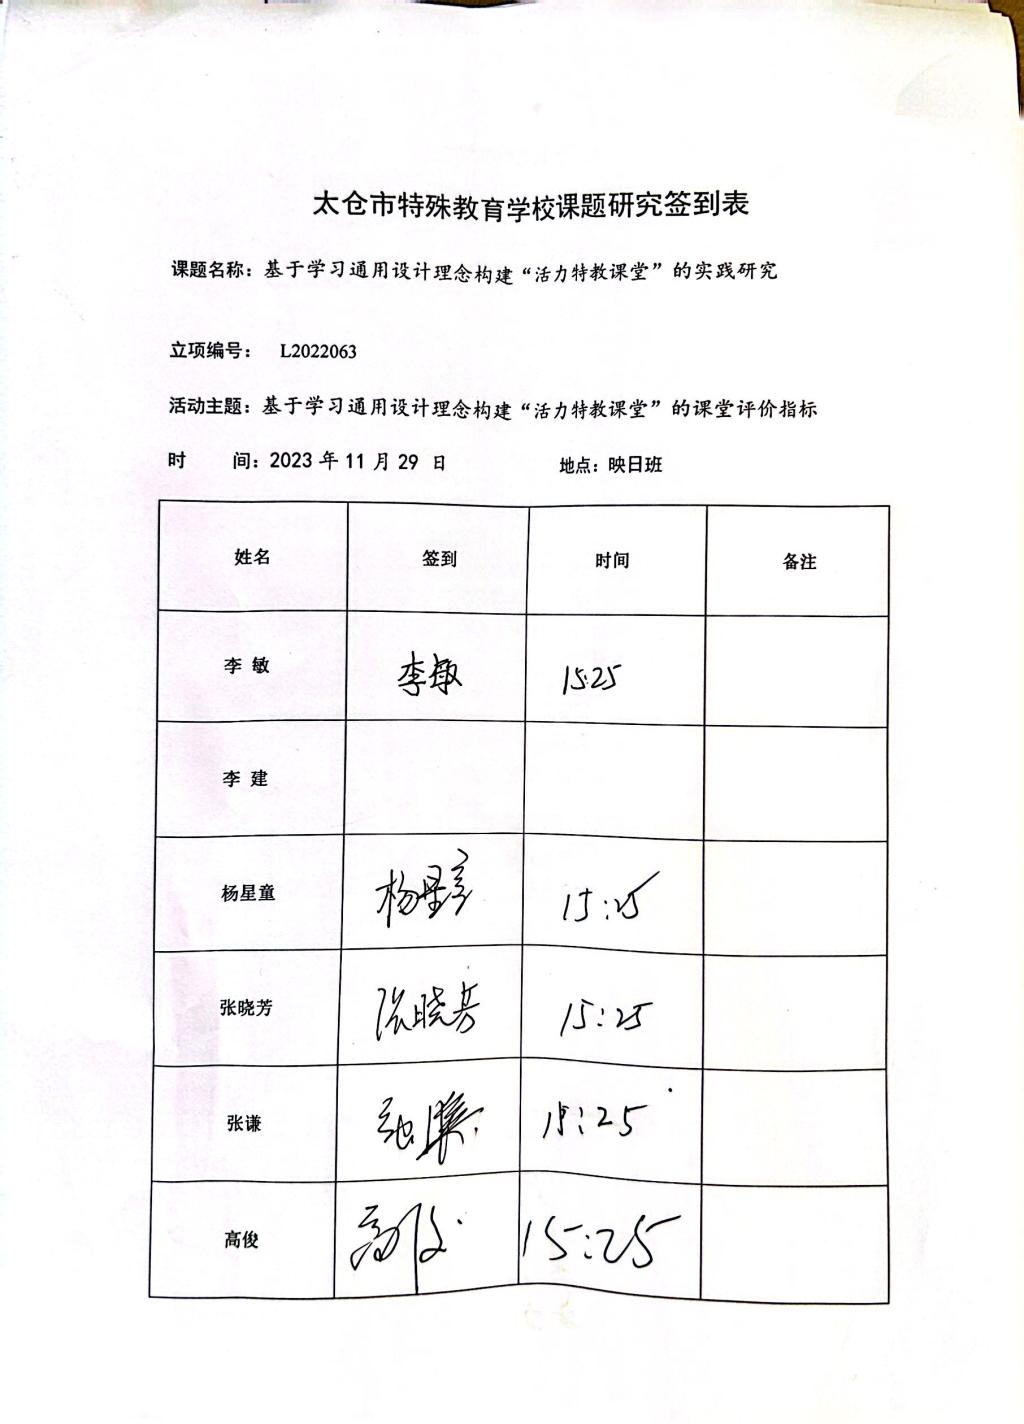 太仓市特殊教育学校课题研究签到表
课题名称：基于学习通用设计理念构建“活力特教课堂”的实践研究
立项编号： L2022063
活动主题：基于学习通用设计理念构建“活力特教课堂”的课堂评价指标
时 间：2023 年 11 月 29 日 地点：映日班
姓名 签到 时间 备注
李 敏 李敏 15:25
李 建
杨星童 杨星童 15:25
张晓芳 张晓芳 15:25
张谦 张谦 15:25
高俊 高俊 15:25